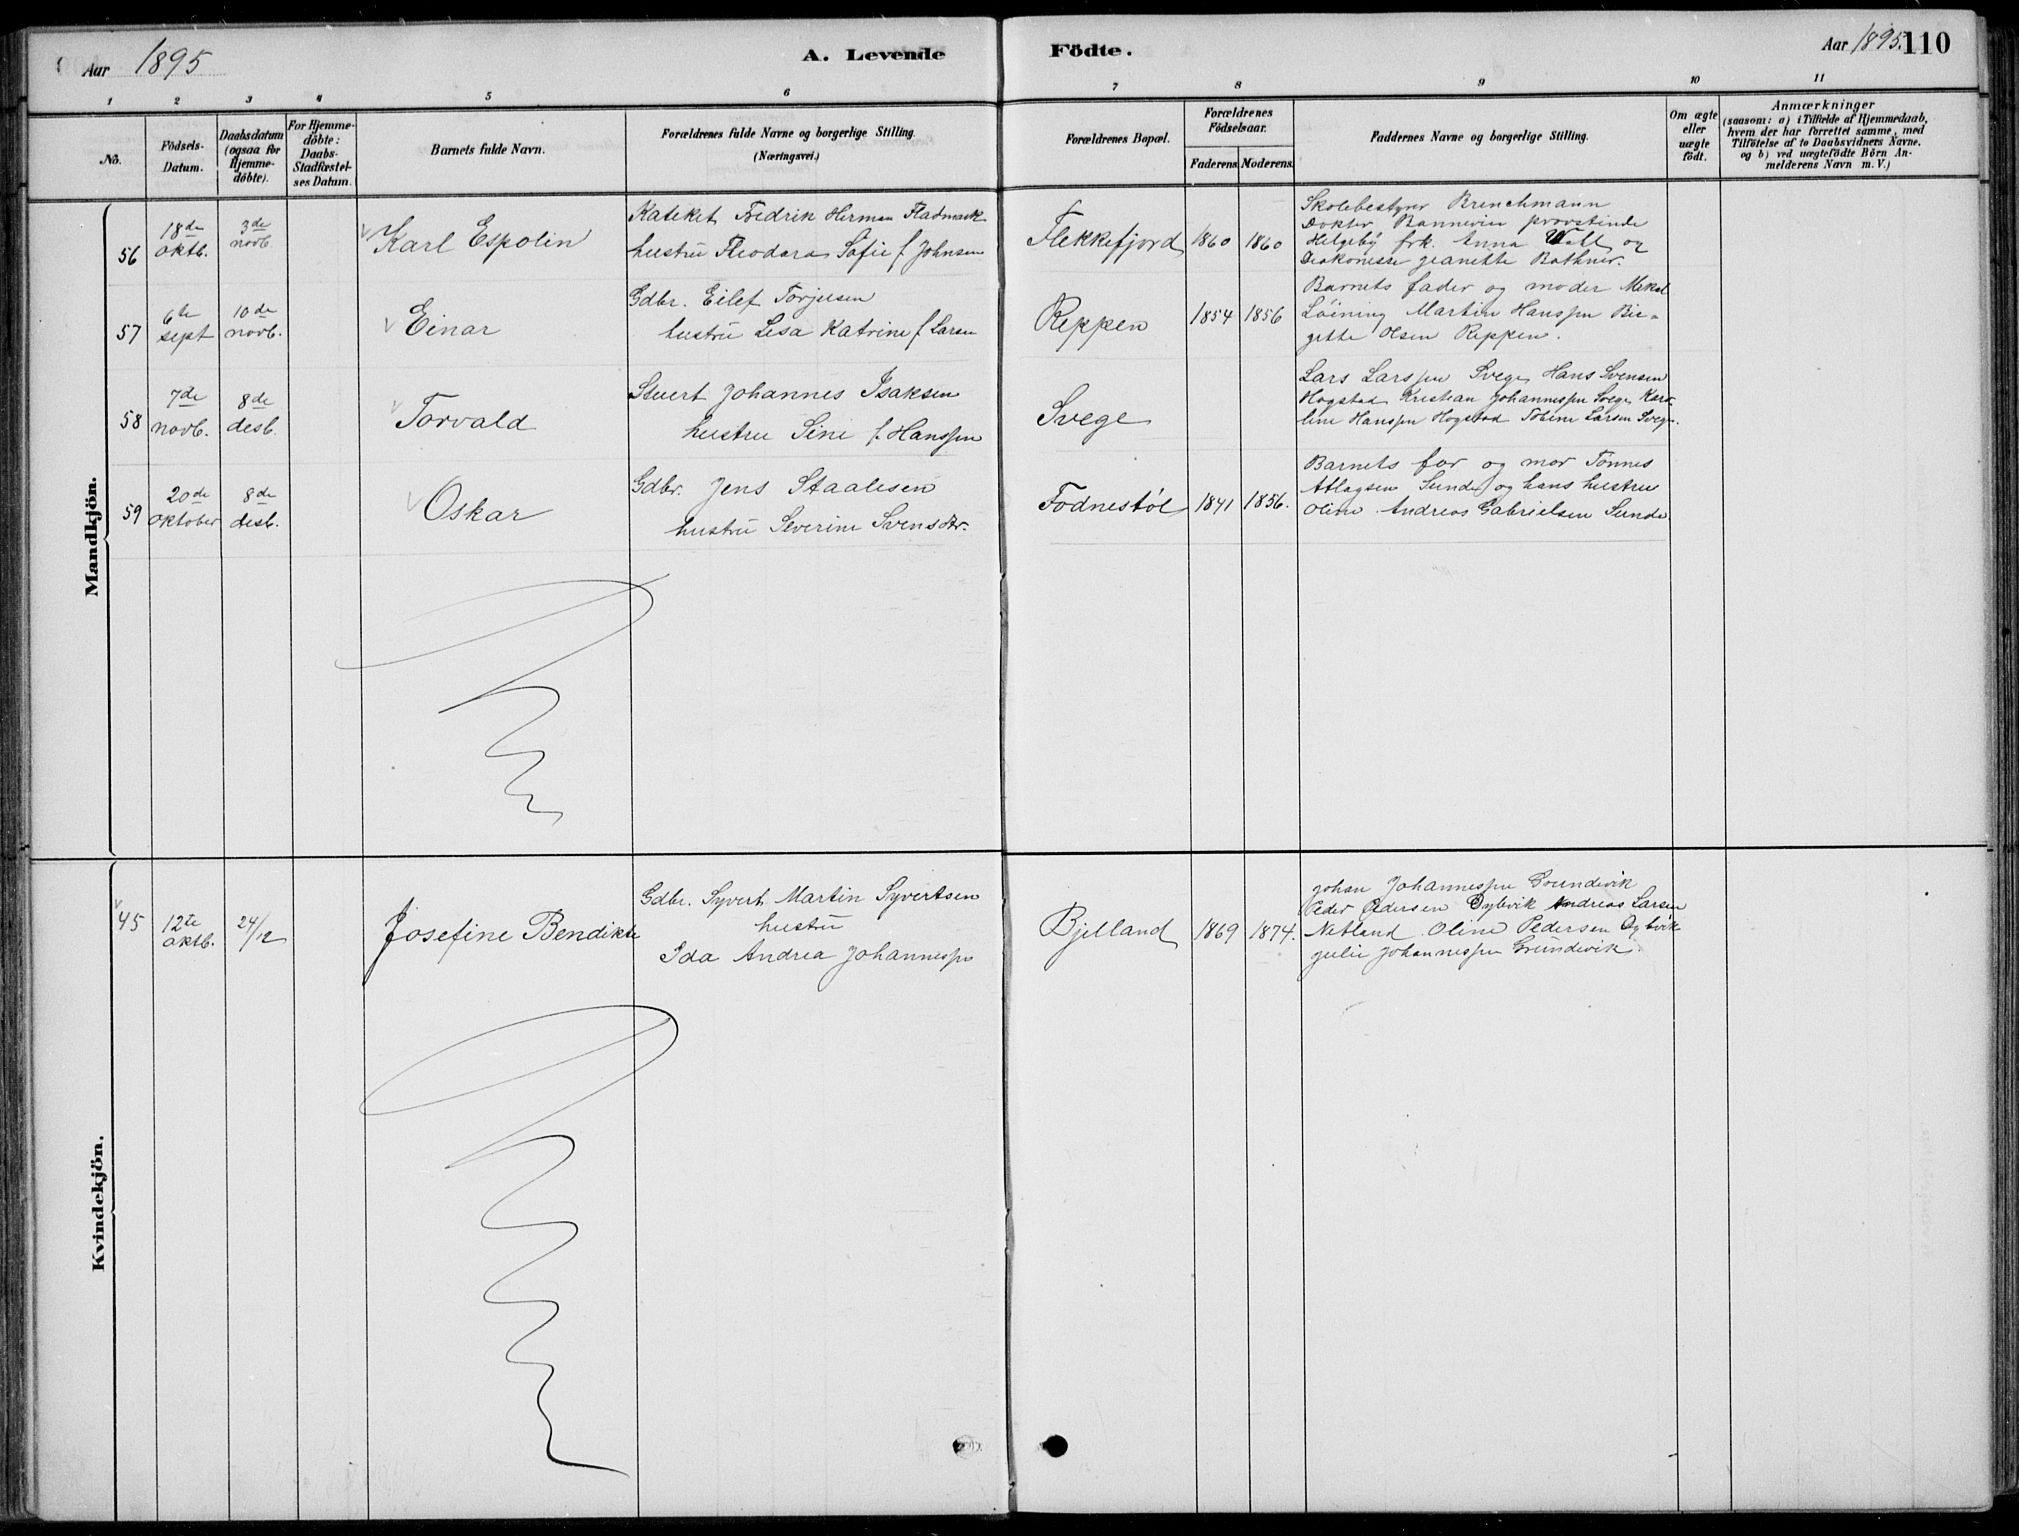 Aar 1895
A. Levende
Födte.
Aar 1895. 110
1 2 3 4 5 6 7 8 9 10 11
No.
Födsels-
Datum.
Daabsdatum
(ogsaa for
Hjemme-
döbte).
For Hjemme-
döbte:
Daabs-
Stadfæstel-
ses Datum.
Barnets fulde Navn.
Forældrenes fulde Navne og borgerlige Stilling.
(Næringsvei.)
Forældrenes Bopæl.
Forældrenes
Födselsaar.
Faderens. Moderens.
Faddernes Navne og borgerlige Stilling.
Om ægte
eller
uægte
födt.
Anmærkninger
(saasom: a) i Tilfælde af Hjemmedaab,
hvem der har forrettet samme, med
Tilföielse af to Daabsvidners Navne,
og b) ved uægtefödte Börn An-
melderens Navn m. V.)
Mandkjön.
56
18de
oktb.
3de
novb.
Karl Espolin
Kateket Fredrik Herman Fladmark
hustru Theodora Sofie f Johnsen
Flekkefjord
1860 1860
Skolebestyrer Brenchmann
Doktor Bannevin provstinde
Helgeby frk. Anna Wall og
Diakonesse Jeanette Bothner.
57
6te
sept
10de
novb.
Einar
Gdbr. Eilef Torjusen
hustru Lisa Katrine f Larsen
Reppen
1854 1856
Barnets fader og moder Mikal
Löining Martin Hanssen Bir-
gitte Olsen Reppen.
58
7de
novb.
8de
desb.
Torvald
Stuert Johannes Isaksen
hustru Sine f. Hanssen
Svege
Lars Larssen Svege Hans Svensen
Hogstad Kristian Johannessen Svege Karo-
line Hanssen Hogstad Tobine Larsen Svege.
59
20de
oktober
8de
desb.
Oskar
Gdbr. Jens Staalesen
hustru Severine Svensdtr.
Fodnestöl
1841 1856.
Barnets far og mor Tönnes
Atlagsen Sunde og hans hustru
Oline Andreas Gabrielsen Sunde
Kvindekjön.
45
12te
oktb.
24/12
Josefine Bendikte
Gdbr. Syvert Martin Syvertsen
hustru
Ida Andrea Johannessen
Bjelland
1869 1874.
Johan Johannessen Grundevik
Peder Pedersen Dybvik Andreas Larsen
Netland Oline Pedersen Dybvik
Julie Johannessen Grundevik.